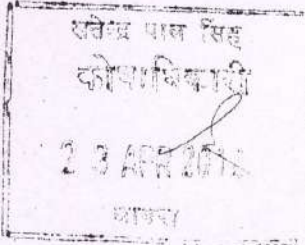 राजेन्द्र पाल सिंह
कोषाधिकारी
2 3 APR 201
आगरा